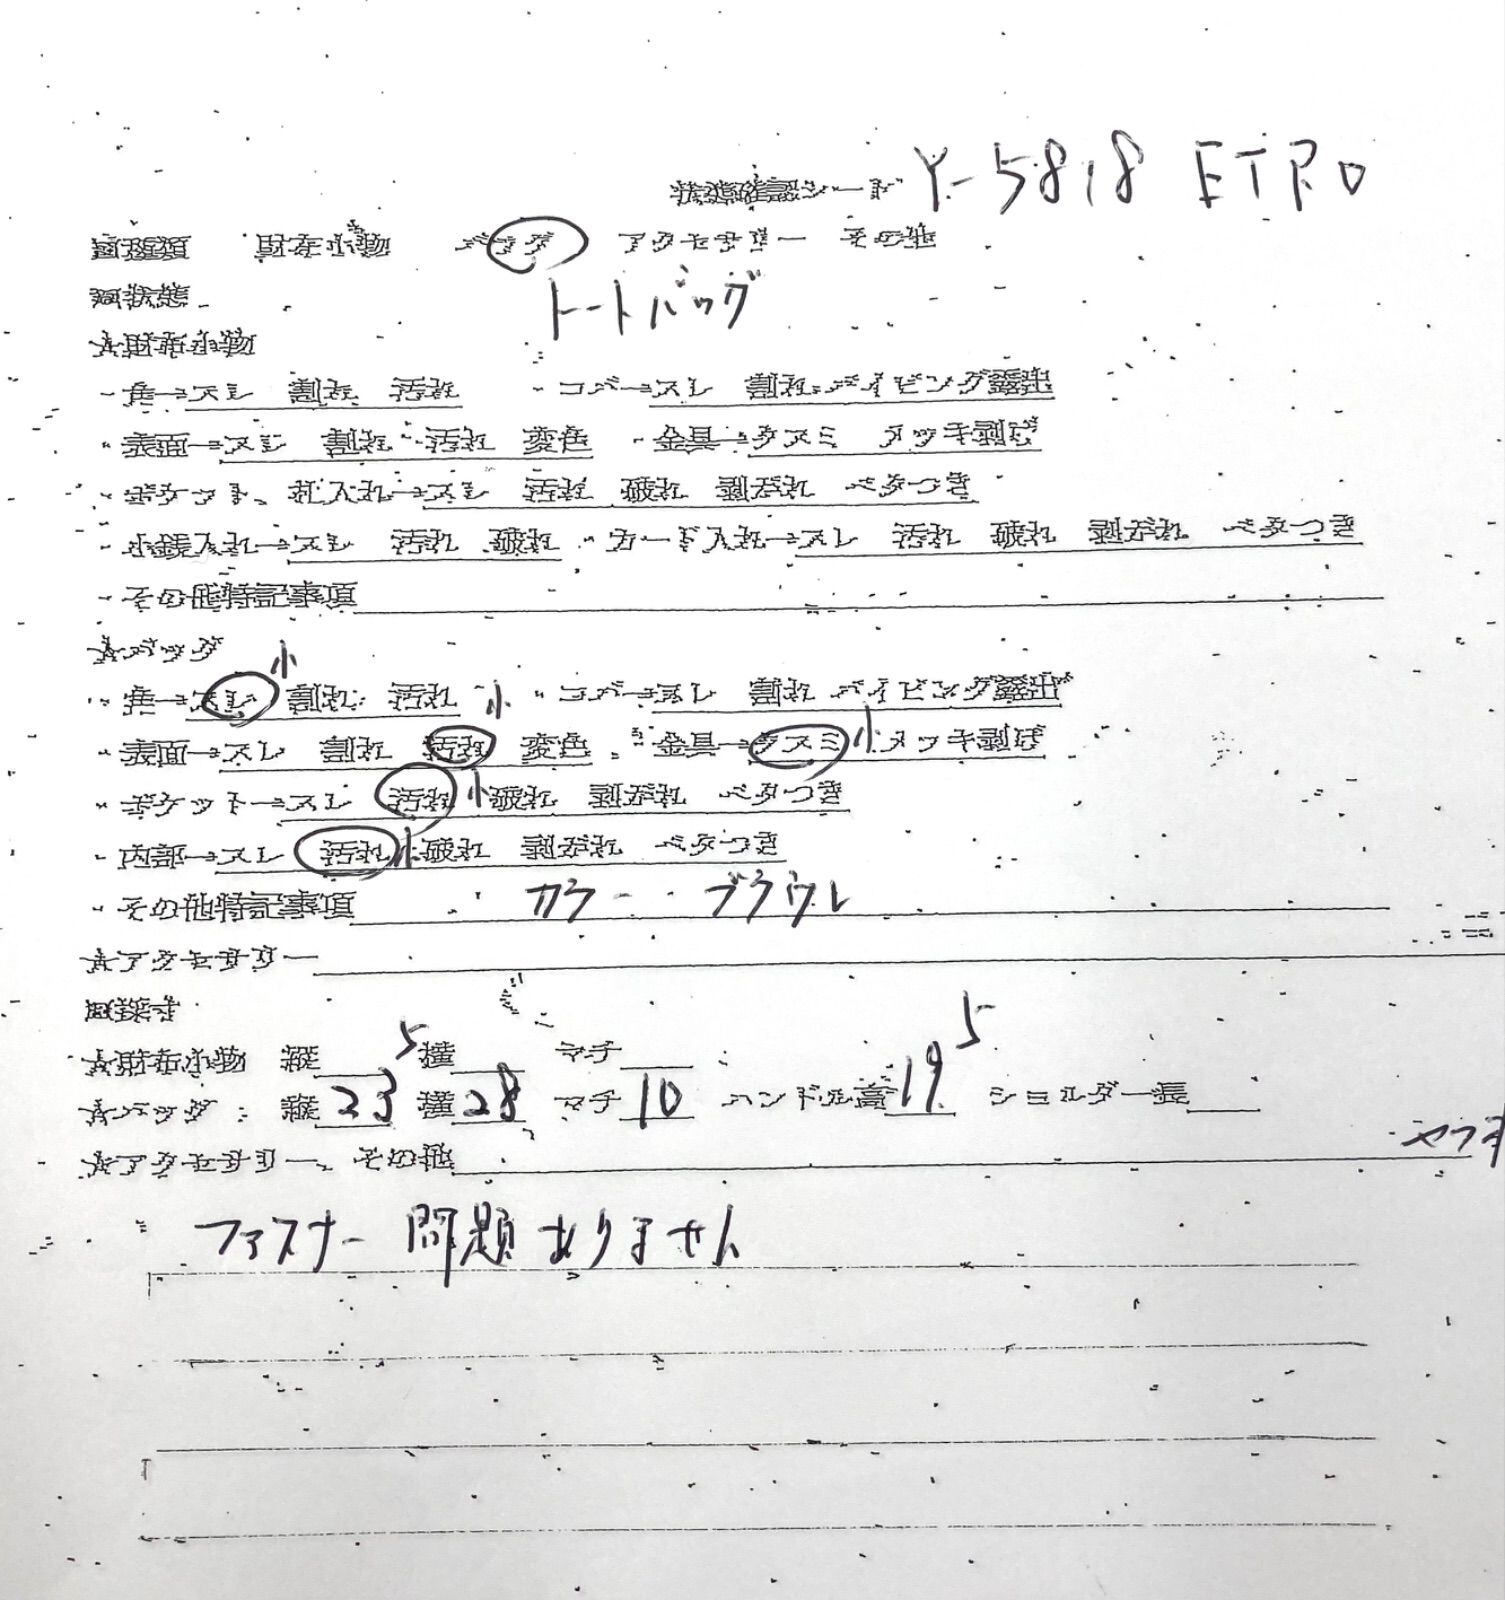 状態確認シート Y-5818 ETRO
□種類 財布小物 バッグ アクセサリー その他
□状態 トートバッグ
☆財布小物
・角→スレ 割れ 汚れ ・コバ→スレ 割れ パイピング露出
・表面→スレ 割れ 汚れ 変色 ・金具→クスミ メッキ剥げ
・ポケット、札入れ→スレ 汚れ 破れ 型崩れ ベタつき
・小銭入れ→スレ 汚れ 破れ ・カード入れ→スレ 汚れ 破れ 型崩れ ベタつき
・その他特記事項
☆バッグ
・角→スレ小 割れ 汚れ ・コバ→スレ 割れ パイピング露出
・表面→スレ 割れ 汚れ小 変色 ・金具→クスミ小 メッキ剥げ
・ポケット→スレ 汚れ小 破れ 型崩れ ベタつき
・内部→スレ 汚れ小 破れ 型崩れ ベタつき
・その他特記事項 カラー ブラウン
☆アクセサリー
□採寸
☆財布小物 縦 横 マチ
☆バッグ 縦 23 5 横 28 マチ 10 ハンドル高 19 5 ショルダー長
☆アクセサリー、その他
ファスナー問題ありません